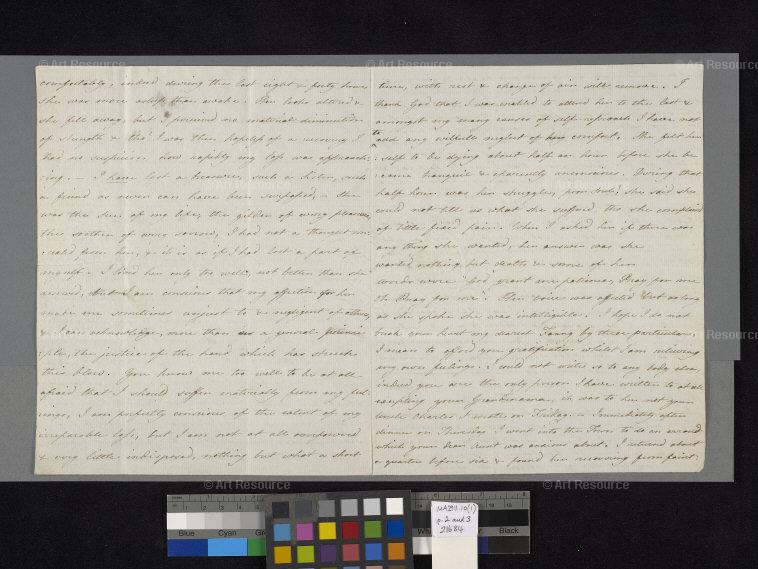 comfortably, indeed during the last eight & forty hours
she was more asleep than awake. Her looks altered &
she fell away, but I perceived no material diminution
of strength & tho' I was then hopeless of a recovery I
had no suspicion how rapidly my loss was approach
:ing. — I have lost a treasure, such a Sister, such
a friend as never can have been surpassed, — she
was the sun of my life, the gilder of every pleasure,
the soother of every sorrow, I had not a thought con
:cealed from her, & it is as if I had lost a part of
myself. I loved her only too well, not better than she
deserved, but I am conscious that my affection for her
made me sometimes unjust to & negligent of others,
& I can acknowledge, more than as a general princi
:ple, the justice of the hand which has struck
this blow. You know me too well to be at all
afraid that I should suffer materially from my feel
:ings, I am perfectly conscious of the extent of my
irreparable loss, but I am not at all overpowered
& very little indisposed, nothing but what a short
time, with rest & change of air will remove. I
thank God that I was enabled to attend her to the last &
amongst my many causes of self-reproach I have not
to add any wilfull neglect of her comfort. She felt her
:self to be dying about half an hour before she be
:came tranquil & aparently unconscious. During that
half hour was her struggle, poor Soul! she said she
could not tell us what she suffered, tho she complained
of little fixed pain. When I asked her if there was
any thing she wanted, her answer was she
wanted nothing but death & some of her
words were "God grant me patience, Pray for me
Oh Pray for me". Her voice was affected but as long
as she spoke she was intelligible. I hope I do not
break your heart my dearest Fanny by these particulars,
I mean to afford you gratification whilst I am relieving
my own feelings. I could not write so to any body else,
indeed you are the only person I have written to at all
excepting your Grandmama, it was to her not your
Uncle Charles I wrote on Friday. — Immediately after
dinner on Thursday I went into the Town to do an errand
which your dear Aunt was anxious about. I returnd about
a quarter before six & found her recovering from faint
© Art Resource
© Art Resource
© Art Resource
© Art Resource
© Art Resource
© Art Resource
© Art Resource
© Art Resource
© Art Resource
Blue Cyan Black
MA 2911.10(1)
p. 2 and 3
211684